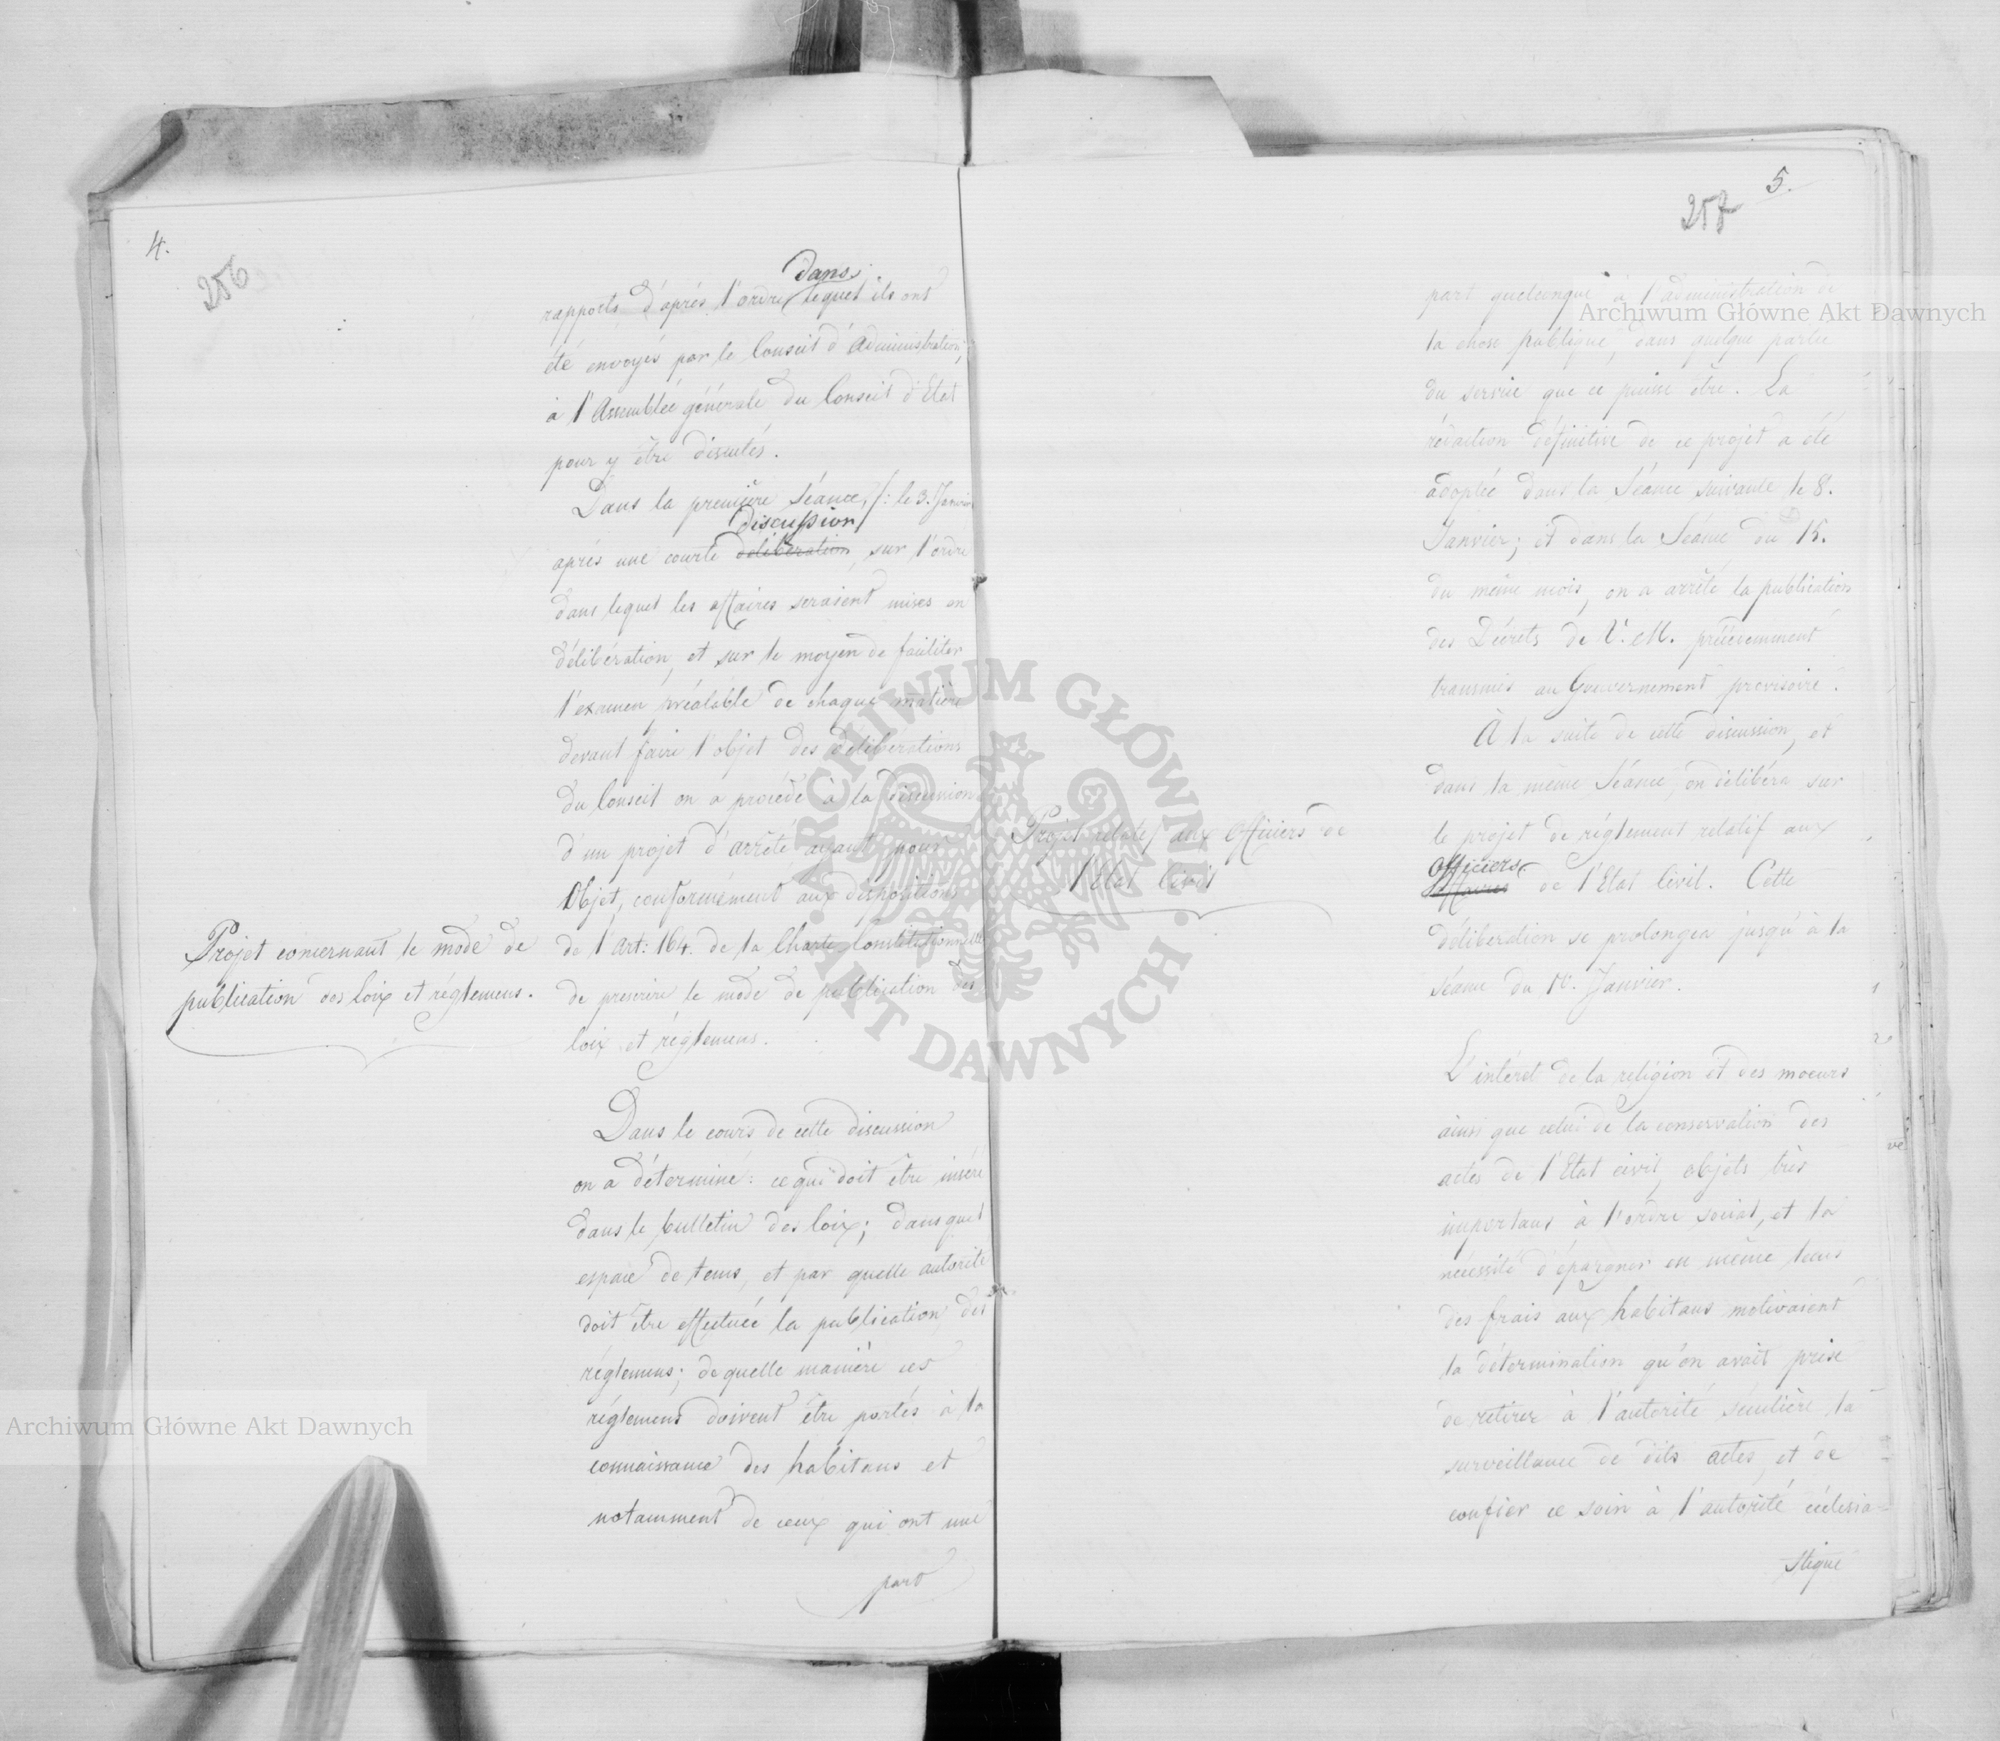 4.
256
dans
rapports d'après l'ordre lequel ils ont
été envoyés par le Conseil d'Administration,
à l'Assemblée générale du Conseil d'Etat
pour y être discutés.
Dans la première Séance, /: le 3. Janvier
discussion
après une courte délibération, sur l'ordre
dans lequel les affaires seraient mises en
délibération, et sur le moyen de faciliter
l'examen préalable de chaque matière
devant faire l'objet des délibérations
du Conseil on a procédé à la discussion
d'un projet d'arrêté ayant pour
Objet, conformément aux dispositions
de l'art: 164. de la Charte Constitutionnelle
de prescrire le mode de publication des
loix et réglemens.
Projet concernant le mode de
publication des loix et réglemens.
Dans le cours de cette discussion
on a déterminé: ce qui doit être inséré
dans le bulletin des loix; dans quel
espace de tems, et par quelle autorité
doit être effectuée la publication des
réglemens; de quelle manière ces
réglemens doivent être portés à la
connaissance des habitans et
notamment de ceux qui ont une
part
5.
257
part quelconque à l'administration de
la chose publique, dans quelque partie
du service que ce puisse être. La
rédaction définitive de ce projet a été
adoptée dans la Séance suivante le 8.
Janvier; et dans la Séance du 15.
du même mois, on a arrêté la publication
des Décrets de V. M. précédemment
transmis au Gouvernement provisoire.
À la suite de cette discussion, et
dans la même Séance, on délibéra sur
le projet de réglement relatif aux
Officiers
affaires de l'Etat Civil. Cette
délibération se prolongea jusqu'à la
Séance du Janvier.
Projet relatif aux Officiers de
l'Etat Civil
L'intérêt de la religion et des moeurs
ainsi que celui de la conservation des
actes de l'Etat civil, objets très
importans à l'ordre social, et la
nécessité d'épargner en même tems
des frais aux habitans motivaient
la détermination qu'on avait prise
de retirer à l'autorité séculière la
surveillance de dits actes, et de
confier ce soin à l'autorité écclesia-
stique
Archiwum Główne Akt Dawnych
Archiwum Główne Akt Dawnych
ARCHIWUM GŁÓWNE · AKT DAWNYCH ·